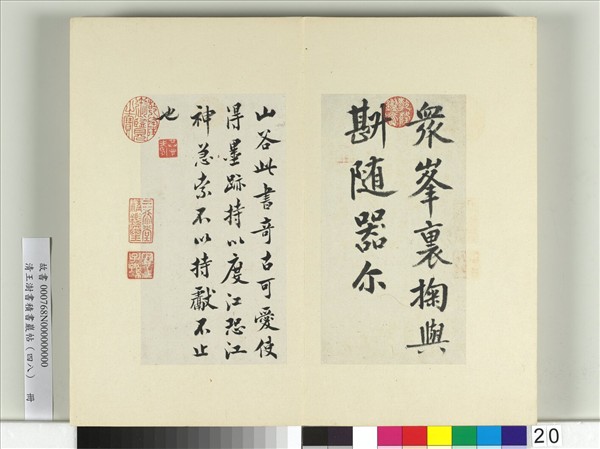 衆峯裏掬與
斟随器尔
山谷此書奇古可愛使
得墨跡持以度江恐江
神急索不以持獻不止
也
故書 000768N000000000
清王澍書積書巖帖（四八） 冊
20